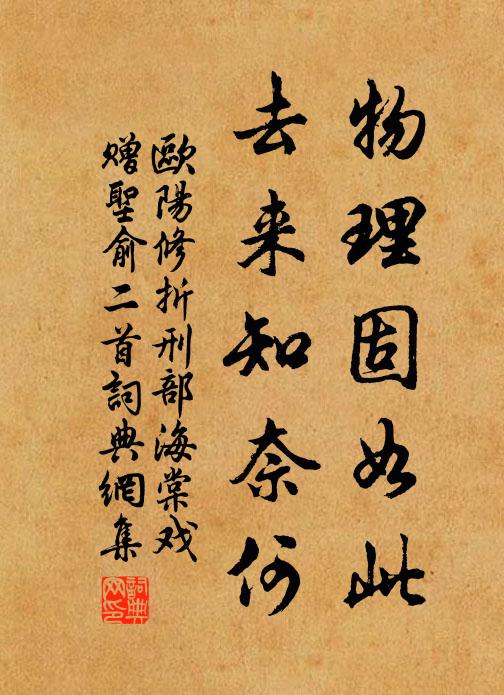 物理固如此
去来知奈何
歐陽修折刑部海棠戏
贈聖俞二首詞典網集
詞典
网印